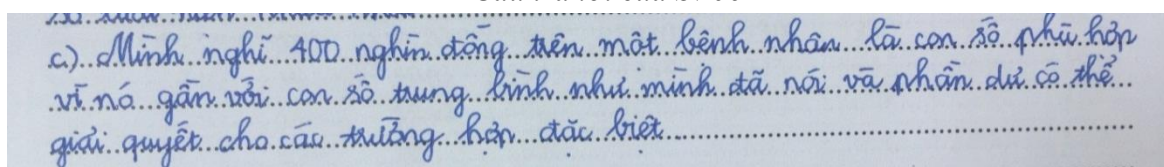 c) Mình nghĩ 400 nghìn đồng trên một bệnh nhân là con số phù hợp
vì nó gần với con số trung bình như mình đã nói và phần dư có thể
giải quyết cho các trường hợp đặc biệt